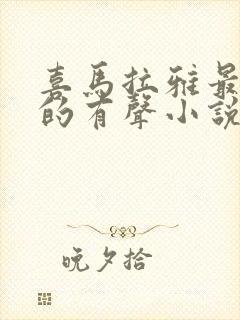 喜馬拉雅最
的有聲小說
晚夕拾